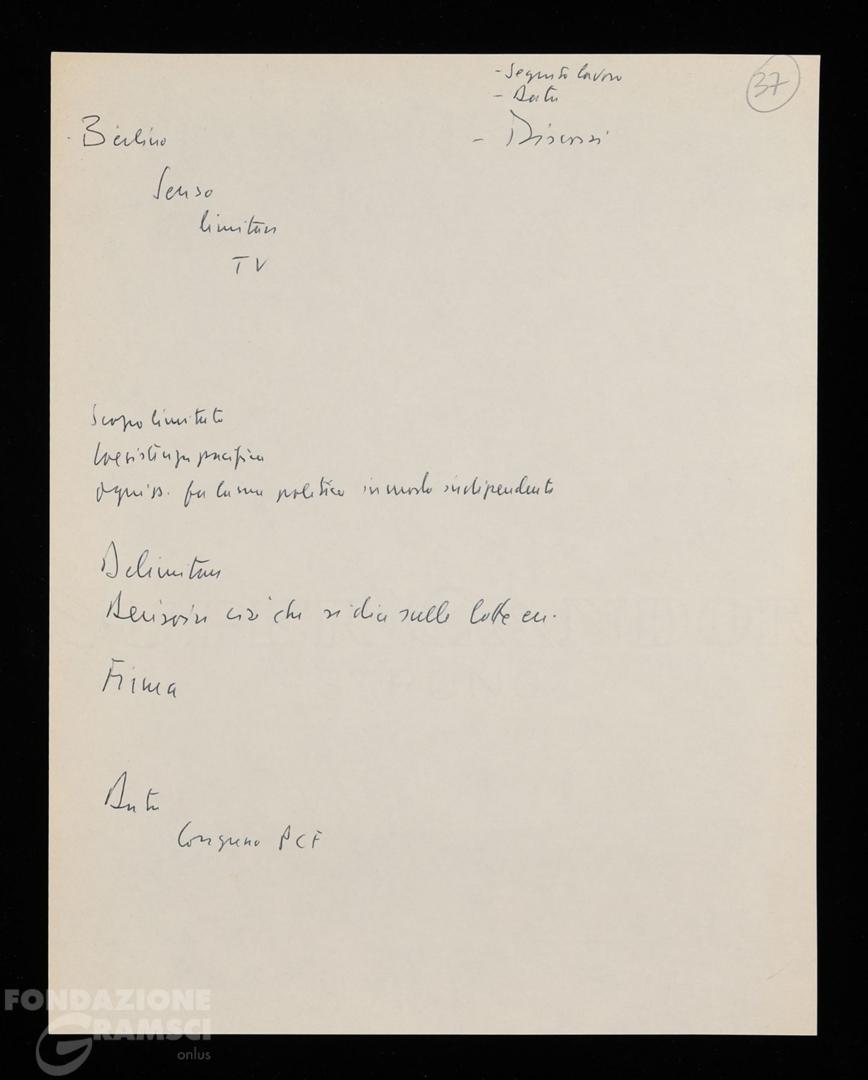 - Seguito lavoro
- Data
- Discorsi
37
- Berlino
Senso
limitare
TV
Scopo limitato
Coesistenza pacifica
ogni p. fa la sua politica in modo indipendente
Delimitare
Decisioni ciò che si dice sulle lotte
Firma
Data
Congresso PCF
FONDAZIONE
GRAMSCI
onlus